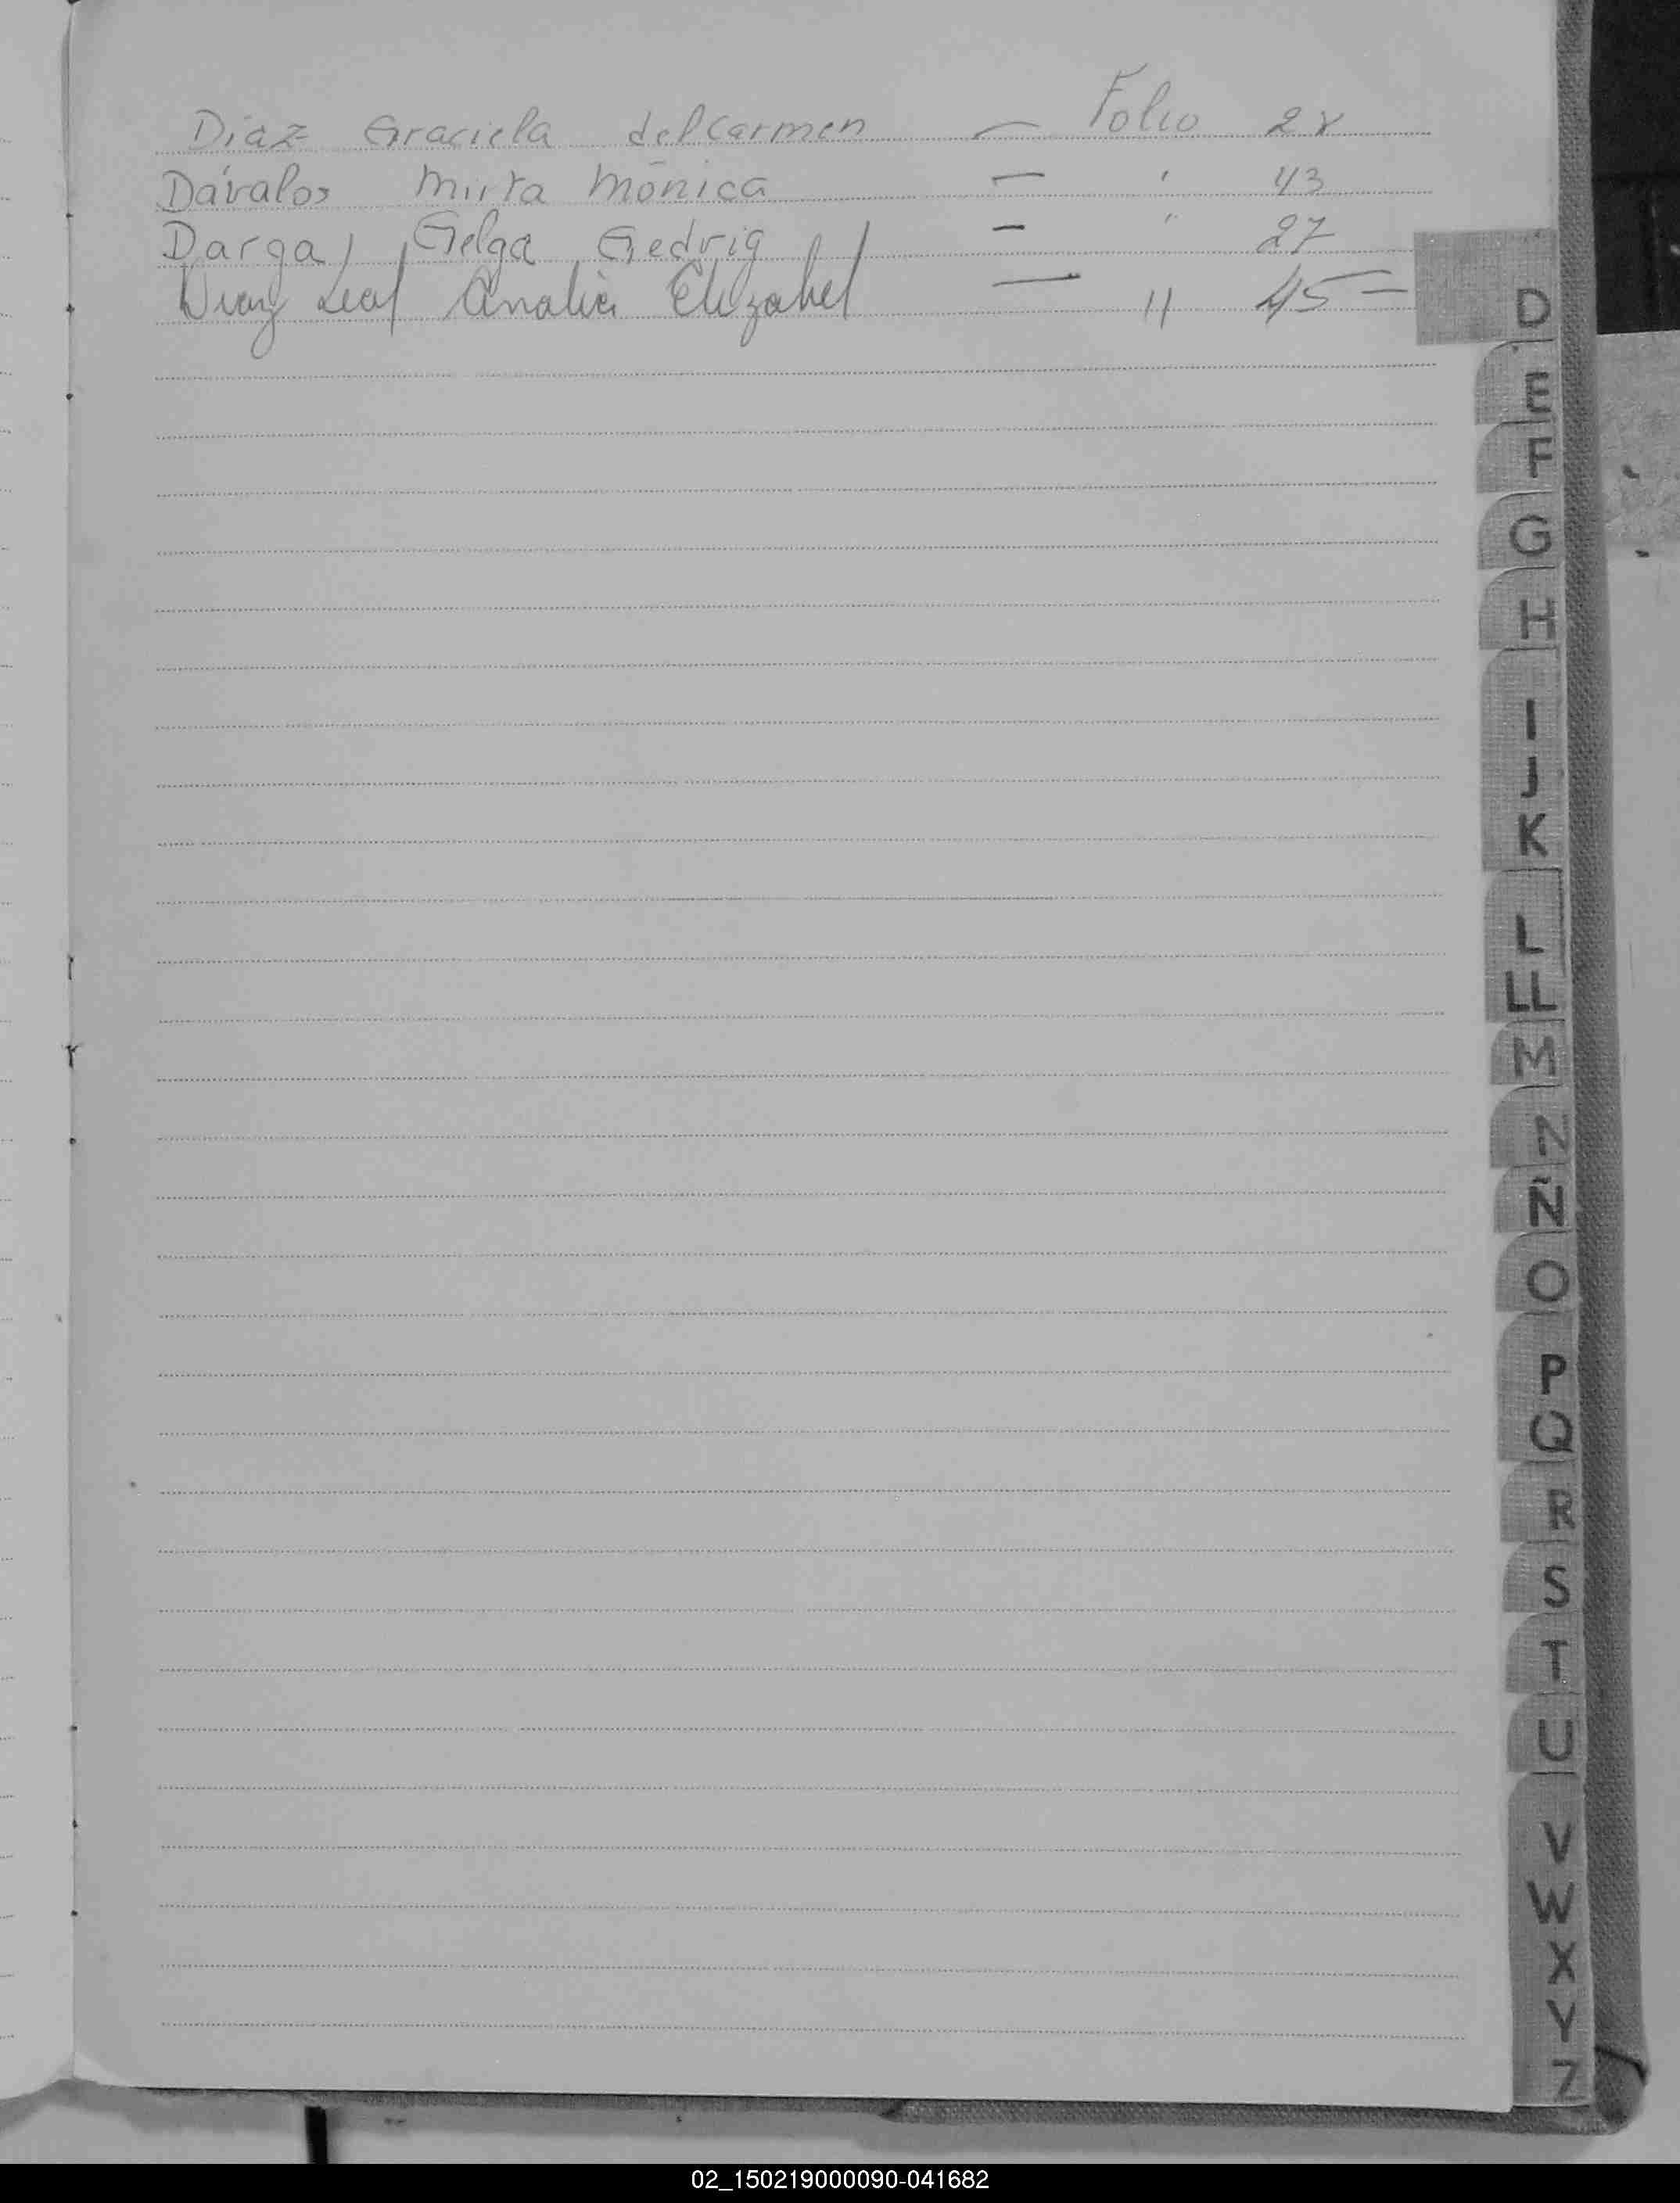 Diaz Graciela del Carmen — Folio 28
Dávalos Mirta Mónica — " 43
Darga, Gelga Gedvig — " 27
Diaz Leal Analia Elizabel — " 45 =
D
E
F
G
H
I
J
K
L
LL
M
N
Ñ
O
P
Q
R
S
T
U
V
W
X
Y
Z
02_150219000090-041682